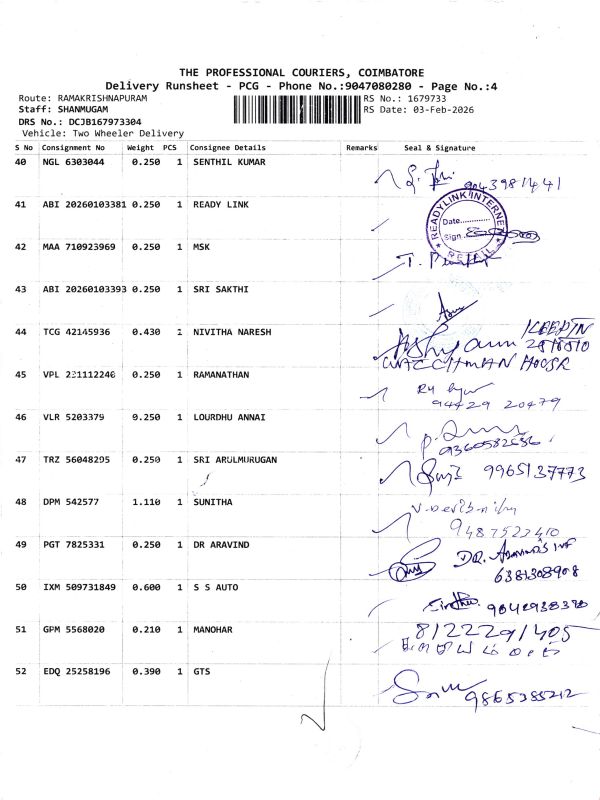 THE PROFESSIONAL COURIERS, COIMBATORE
Delivery Runsheet - PCG - Phone No.:9047080280 - Page No.:4
Route: RAMAKRISHNAPURAM
RS No.: 1679733
Staff: SHANMUGAM
RS Date: 03-Feb-2026
DRS No.: DCJB167973304
Vehicle: Two Wheeler Delivery
S No Consignment No Weight PCS Consignee Details Remarks Seal & Signature
40 NGL 6303044 0.250 1 SENTHIL KUMAR
41 ABI 20260103381 0.250 1 READY LINK
READYLINK INTERNET
Date............
Sign
RETAIL
42 MAA 710923969 0.250 1 MSK
43 ABI 20260103393 0.250 1 SRI SAKTHI
44 TCG 42145936 0.430 1 NIVITHA NARESH
45 VPL 231112246 0.250 1 RAMANATHAN
94429 20479
46 VLR 5203379 0.250 1 LOURDHU ANNAI
47 TRZ 56048295 0.250 1 SRI ARULMURUGAN 9965137773
48 DPM 542577 1.110 1 SUNITHA
9487522410
49 PGT 7825331 0.250 1 DR ARAVIND
6381308908
50 IXM 509731849 0.600 1 S S AUTO
51 GPM 5568020 0.210 1 MANOHAR 8122291405
52 EDQ 25258196 0.390 1 GTS
9865385212